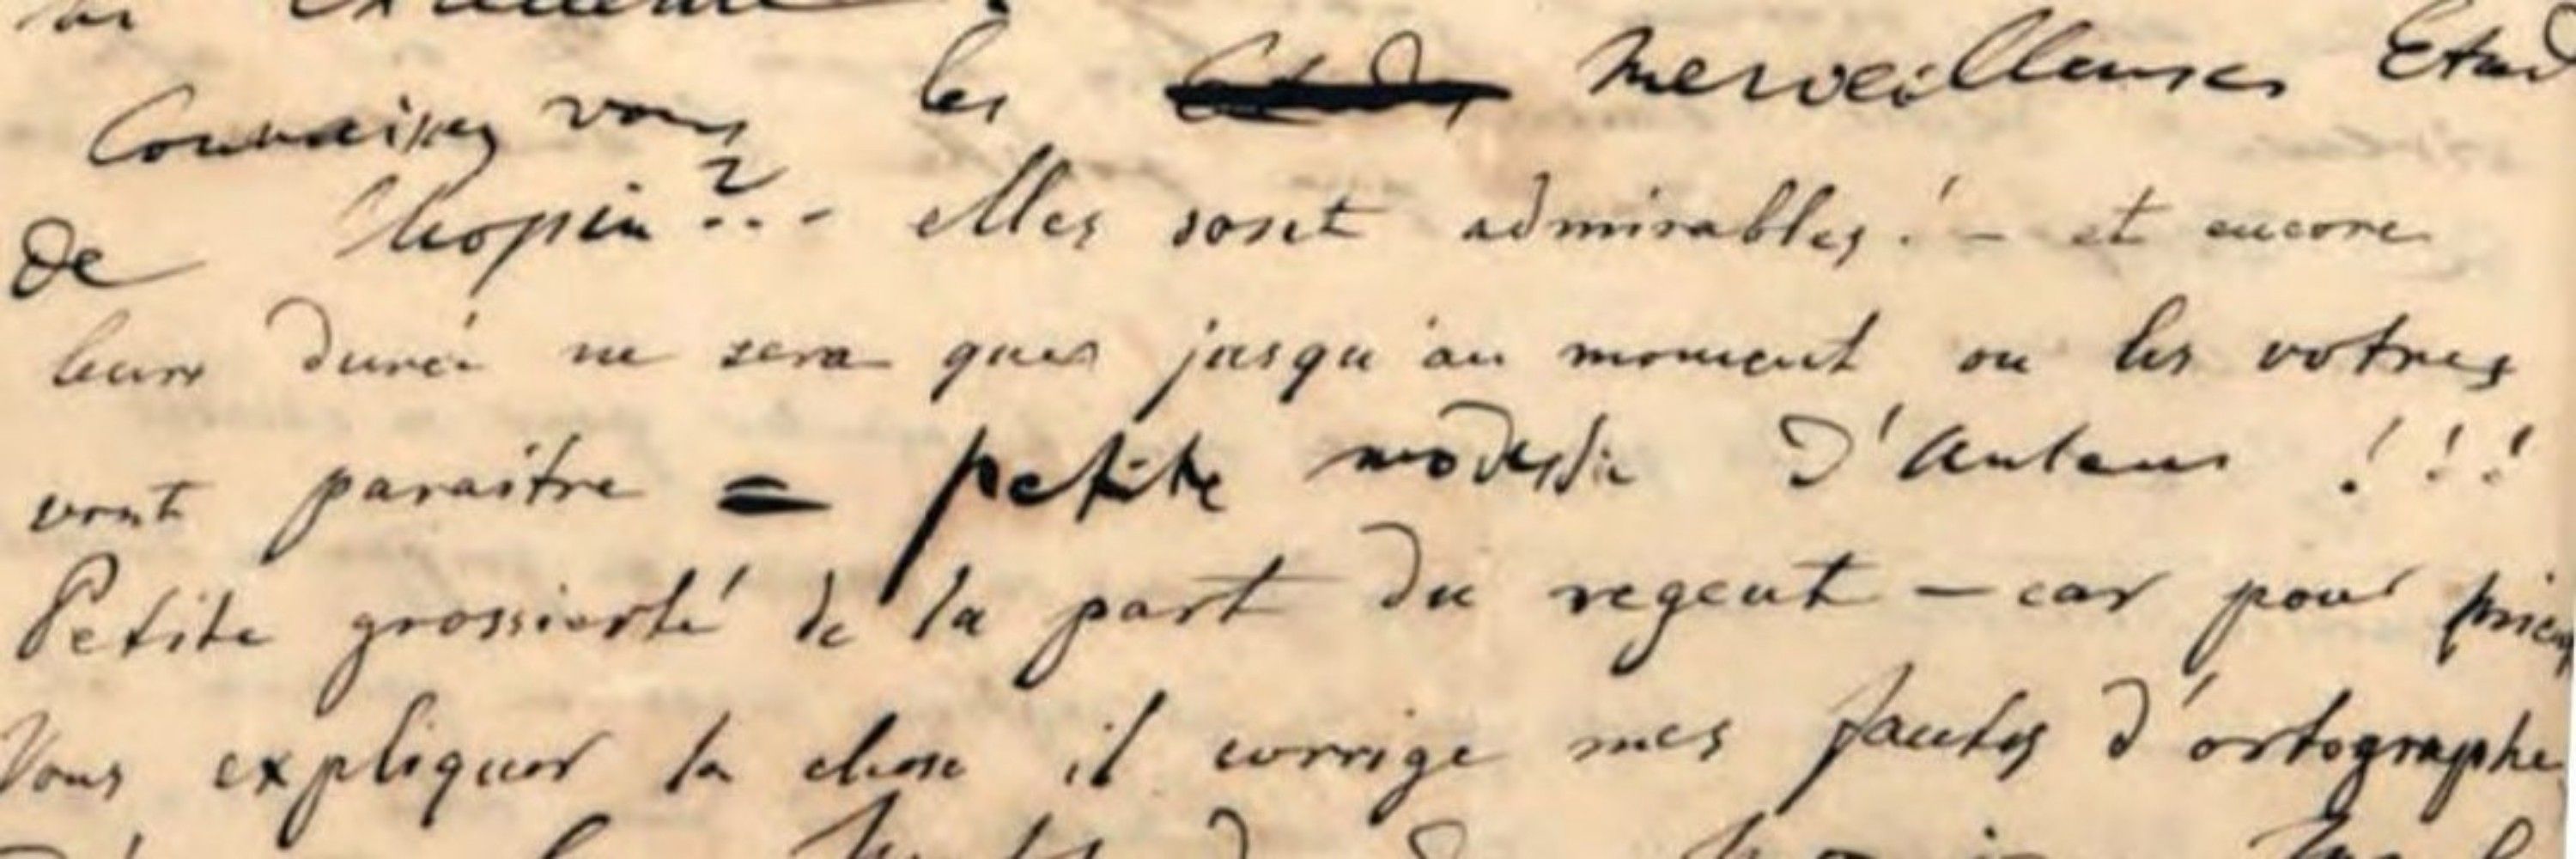 Connaissez vous les merveilleuses Etud
de Chopin?... elles sont admirables! – et encore
leur durée ne sera que jusqu'au moment ou les votres
vont paraitre = petite modestie d'Auteur !!!
Petite grossierté de la part du regent – car pour mieux
Vous expliquer la chose il corrige mes fautes d'ortographe